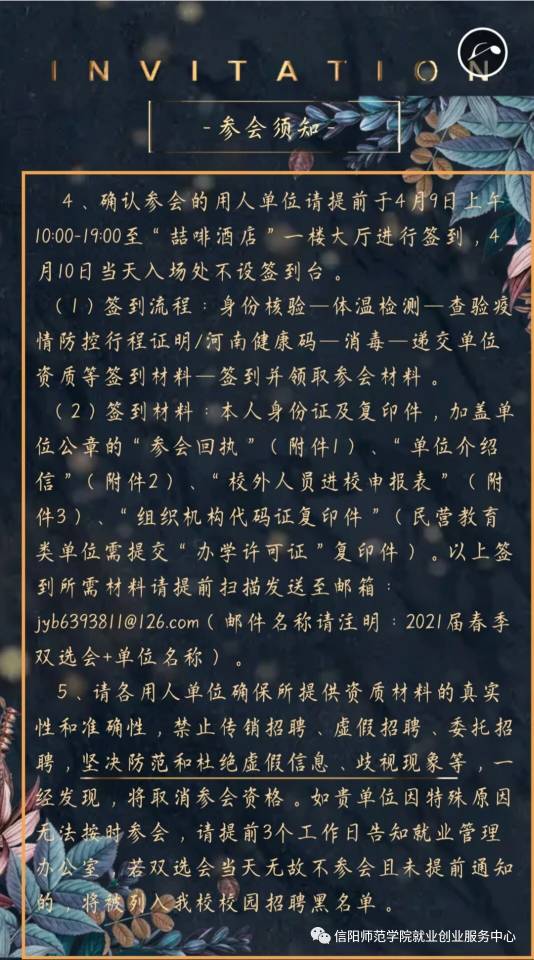 INVITATION
-参会须知-
4、确认参会的用人单位请提前于4月9日上午
10:00-19:00至“喆啡酒店”一楼大厅进行签到，4
月10日当天入场处不设签到台。
（1）签到流程：身份核验—体温检测—查验疫
情防控行程证明/河南健康码—消毒—递交单位
资质等签到材料—签到并领取参会材料。
（2）签到材料：本人身份证及复印件，加盖单
位公章的“参会回执”（附件1）、“单位介绍
信”（附件2）、“校外人员进校申报表”（附
件3）、“组织机构代码证复印件”（民营教育
类单位需提交“办学许可证”复印件）。以上签
到所需材料请提前扫描发送至邮箱：
jyb6393811@126.com（邮件名称请注明：2021届春季
双选会+单位名称）。
5、请各用人单位确保所提供资质材料的真实
性和准确性，禁止传销招聘、虚假招聘、委托招
聘，坚决防范和杜绝虚假信息、歧视现象等，一
经发现，将取消参会资格。如贵单位因特殊原因
无法按时参会，请提前3个工作日告知就业管理
办公室，若双选会当天无故不参会且未提前通知
的，将被列入我校校园招聘黑名单。
信阳师范学院就业创业服务中心